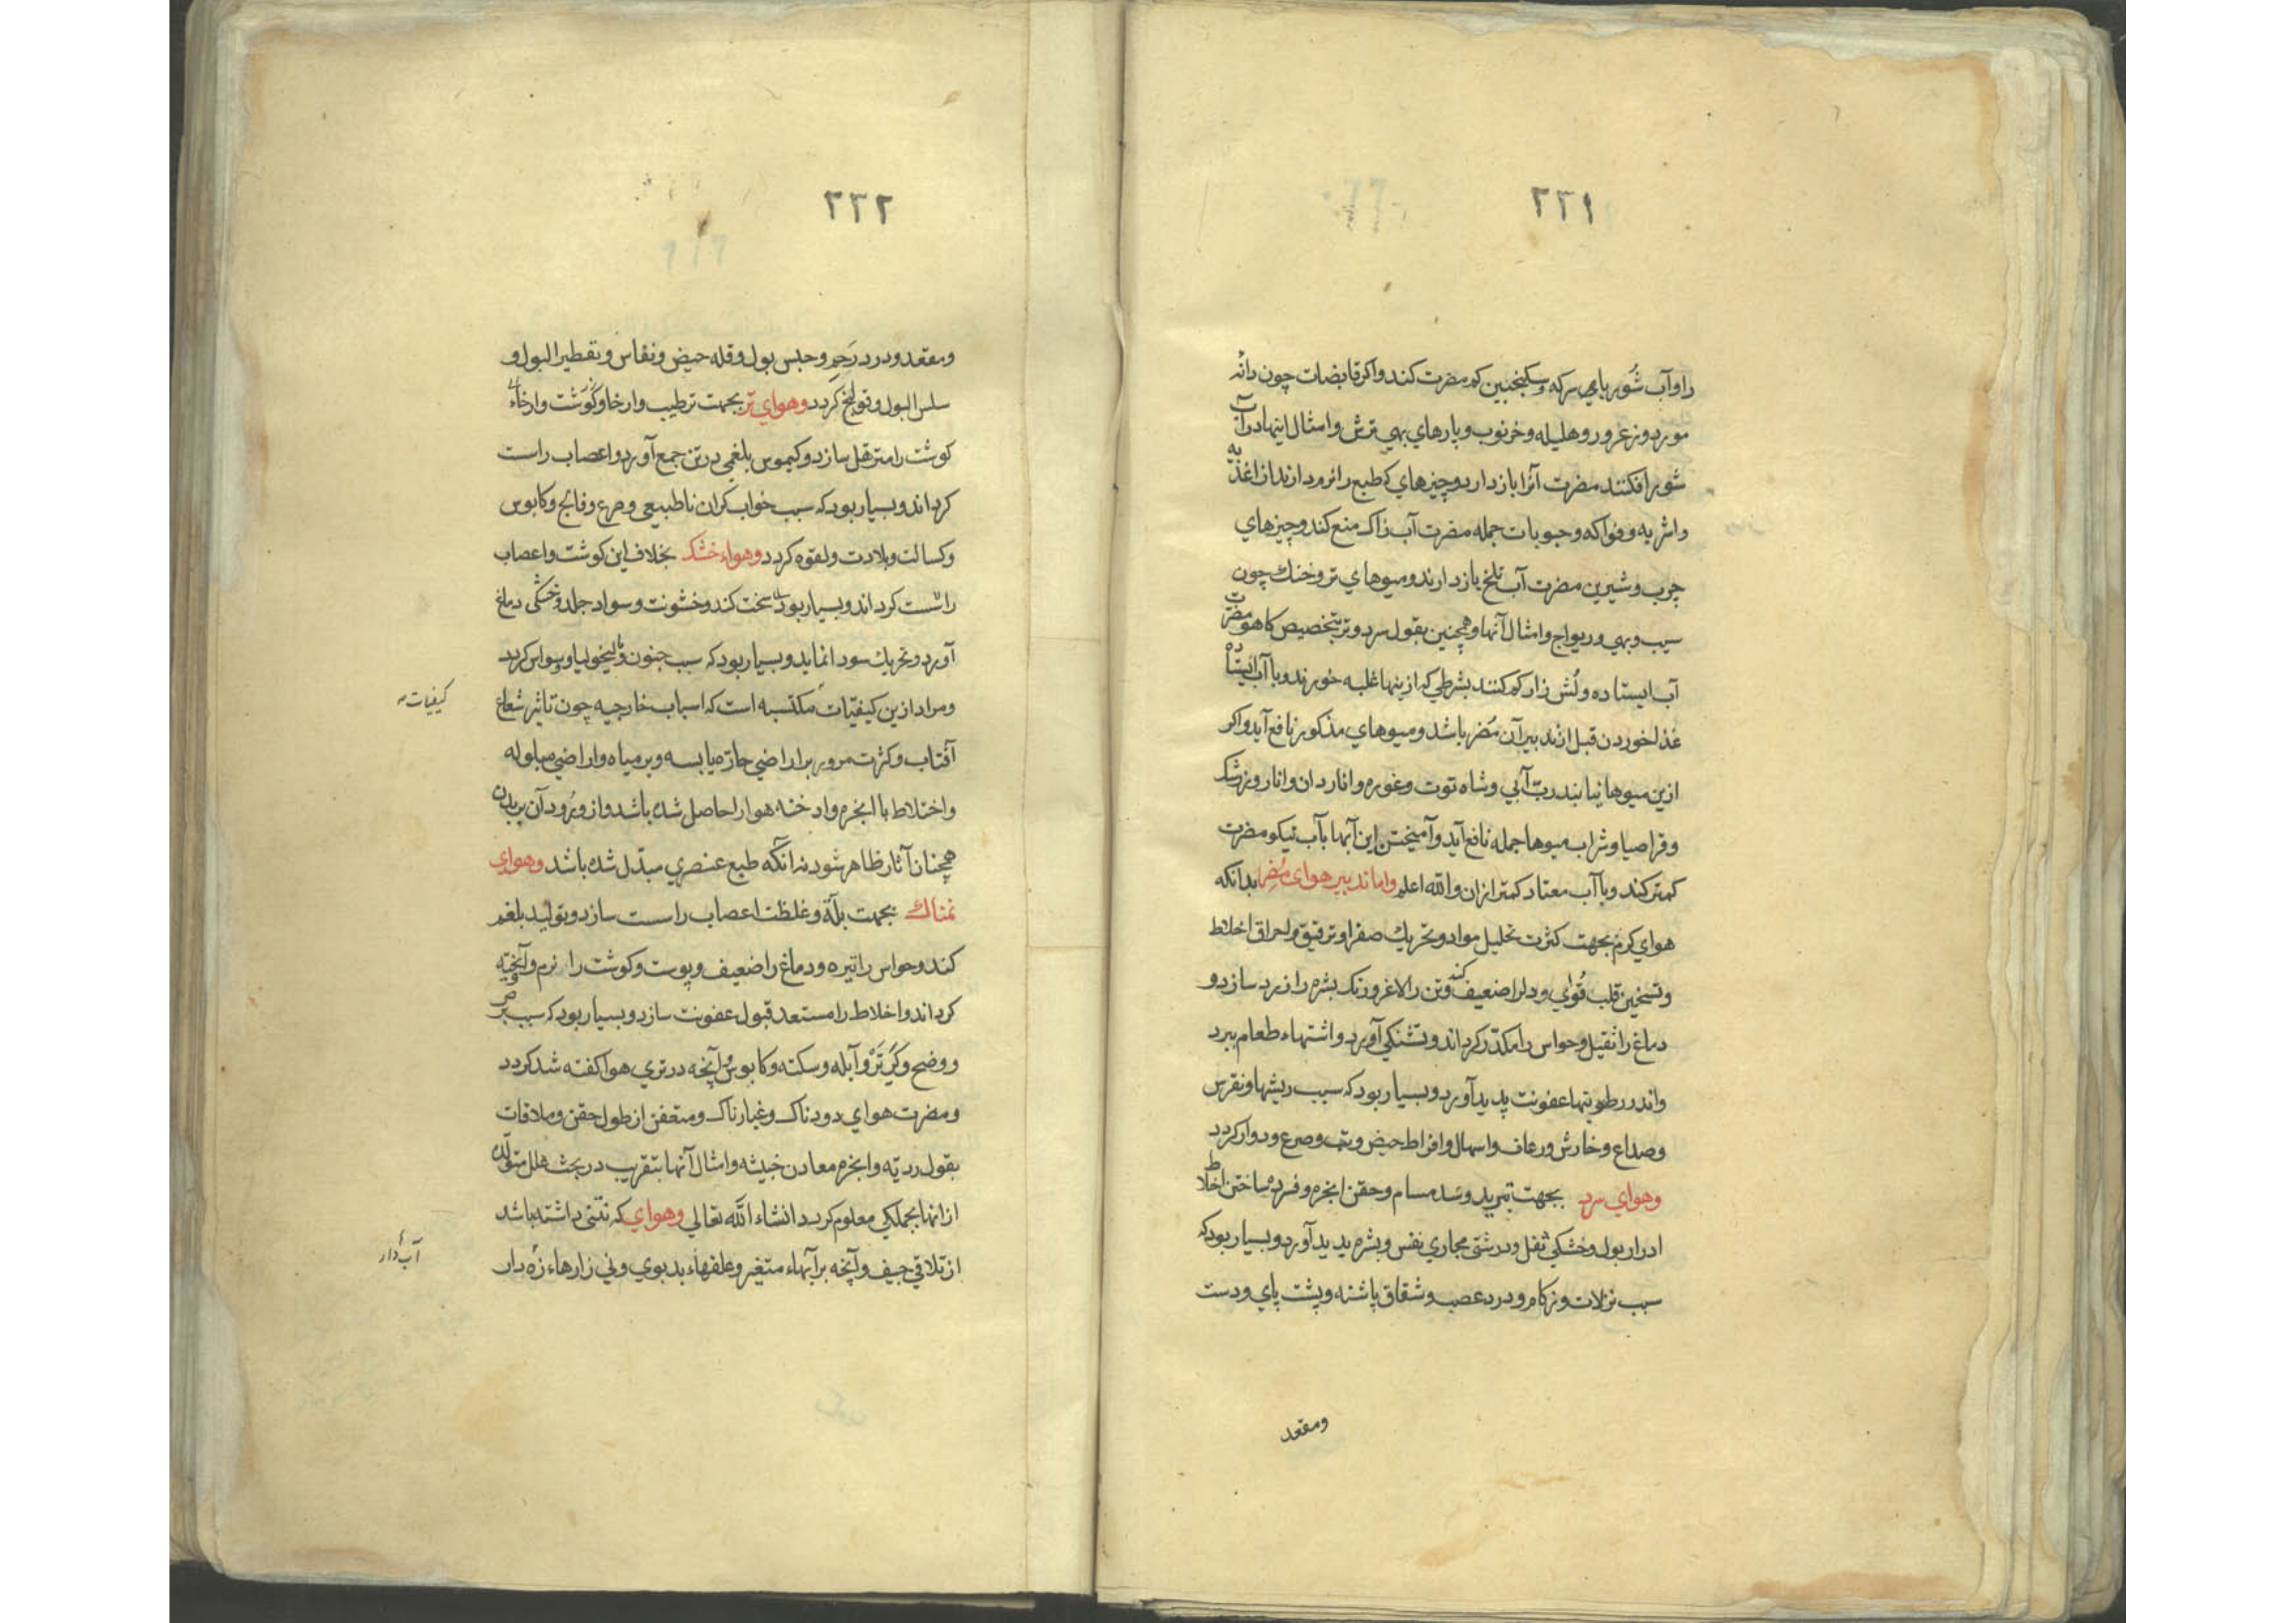 ۲۳۱
را و آب شور بابهی سرکه و سکنجبین کم مضرت کند و اکر قابضات چون دانه
مورد و زعرور و هلیله و خرنوب و بارهاي بهي ترش و امثال اینها در آب
شور افکنند مضرت آنرا باز دارد و چیزهاي که طبع را نرم دارند از اغذیه
و اشربه و فواکه و حبوبات جمله مضرت آب زاک منع کند و چیزهاي
چرب و شیرین مضرت آب تلخ باز دارند و میوهاي تر و خنک چون
سیب و بهي و ریواج و امثال آنها و همچنین بقول سرد و تر بتخصیص کاهو مضرت
آب ایستاده و لُش زار کم کنند بشرطي که ازینها غلبه خورند و با آب ایستاده
غذا خوردن قبل از تدبیر آن مُضر باشد و میوهاي مذکور نافع آید و اکر
ازین میوها نیابند ربّ آبي و شاه توت و غوره و اناردان و انار و زرشک
و قراصیا و شراب میوها جمله نافع آید و آمیختن این آبها بآب نیکو مضرت
کمتر کند و با آب معتاد کمتر ازان والله اعلم واما تدبیر هوای مُضِر بدانکه
هواي کرم بجهت کثرت تحلیل مواد و تحریک صفرا و ترقیق و احراق اخلاط
و تسخین قلب قُواي و دلرا ضعیف کند و تن را لاغر و رنک بشره را زرد سازد و
دماغ را ثقیل و حواس را مکدّر کرداند و تشنکي آورد و اشتهاء طعام ببرد
و اندر رطوبتها عفونت پدید آورد و بسیار بود که سبب ریشها و نقرس
و صداع و خارش و رعاف و اسهال و افراط حیض و تب و صرع و دوار کردد
و هواي سرد بجهت تبرید و سَد مسام و حقن ابخره و فسرده ساختن اخلاط
ادرار بول و خشکي ثفل و درشتی مجاري نفس و بشره پدید آورد و بسیار بود که
سبب نزلات و زکام و درد عصب و شقاق پاشنه و پشت پاي و دست
ومقعد
۲۳۲
و مقعد و درد رَحِم و حبس بول و قله حیض و نفاس و تقطیر البول و
سلس البول و قولنج کردد و هواي تر بجهت ترطیب و ارخاء گوشت و ارخاء
کوشت را مترهل سازد و کیموس بلغمی در تن جمع آورد و اعصاب راست
کرداند و بسیار بود که سبب خواب کران ناطبیعی و صرع و فالج و کابوس
و کسالت و بلادت و لقوه کردد و هواء خشک بخلاف این کوشت و اعصاب
راست کرداند و بسیار بود سخت کند و خشونت و سواد جلد و خشکی دماغ
آورد و تحریک سودا نماید و بسیار بود که سبب جنون و مالیخولیا و وسواس کردد
و مراد ازین کیفیّات مکتسبه است که اسباب خارجیه چون تاثیر شعاع
کیفیات
آفتاب و کثرت مرور بر اراضي حاره یابسه و بر میاه و اراضي مبلوله
و اختلاط با ابخره و ادخنه هوا را حاصل شده باشد و از ورُود آن بر بدن
همچنان آثار ظاهر شود نه آنکه طبع عنصري مبدّل شده باشد و هواي
نمناک بجهت بلّة و غلظت اعصاب راسست سازد و تولید بلغم
کند و حواس را تیره و دماغ را ضعیف و پوست و کوشت را نرم و آبخته
کرداند و اخلاط را مستعد قبول عفونت سازد و بسیار بود که سبب برص
و وضح و کَري تَرْ و آبله و سکته و کابوس و آنچه در تري هوا کفته شد کردد
و مضرت هواي دودناک و غبارناک و متعفن از طول حقن و ملاقات
بقول ردیّه و ابخره معادن خبیثه و امثال آنها بتقریب در بحث علل متولّده
ازانها بجملکي معلوم کردد انشاء الله تعالی و هواي که نتنی داشته باشد
از تلاقي جیف و آنچه بر آبهاء متغیر و علفهاء بدبوي و ني زارهاء زه دار
آب دار